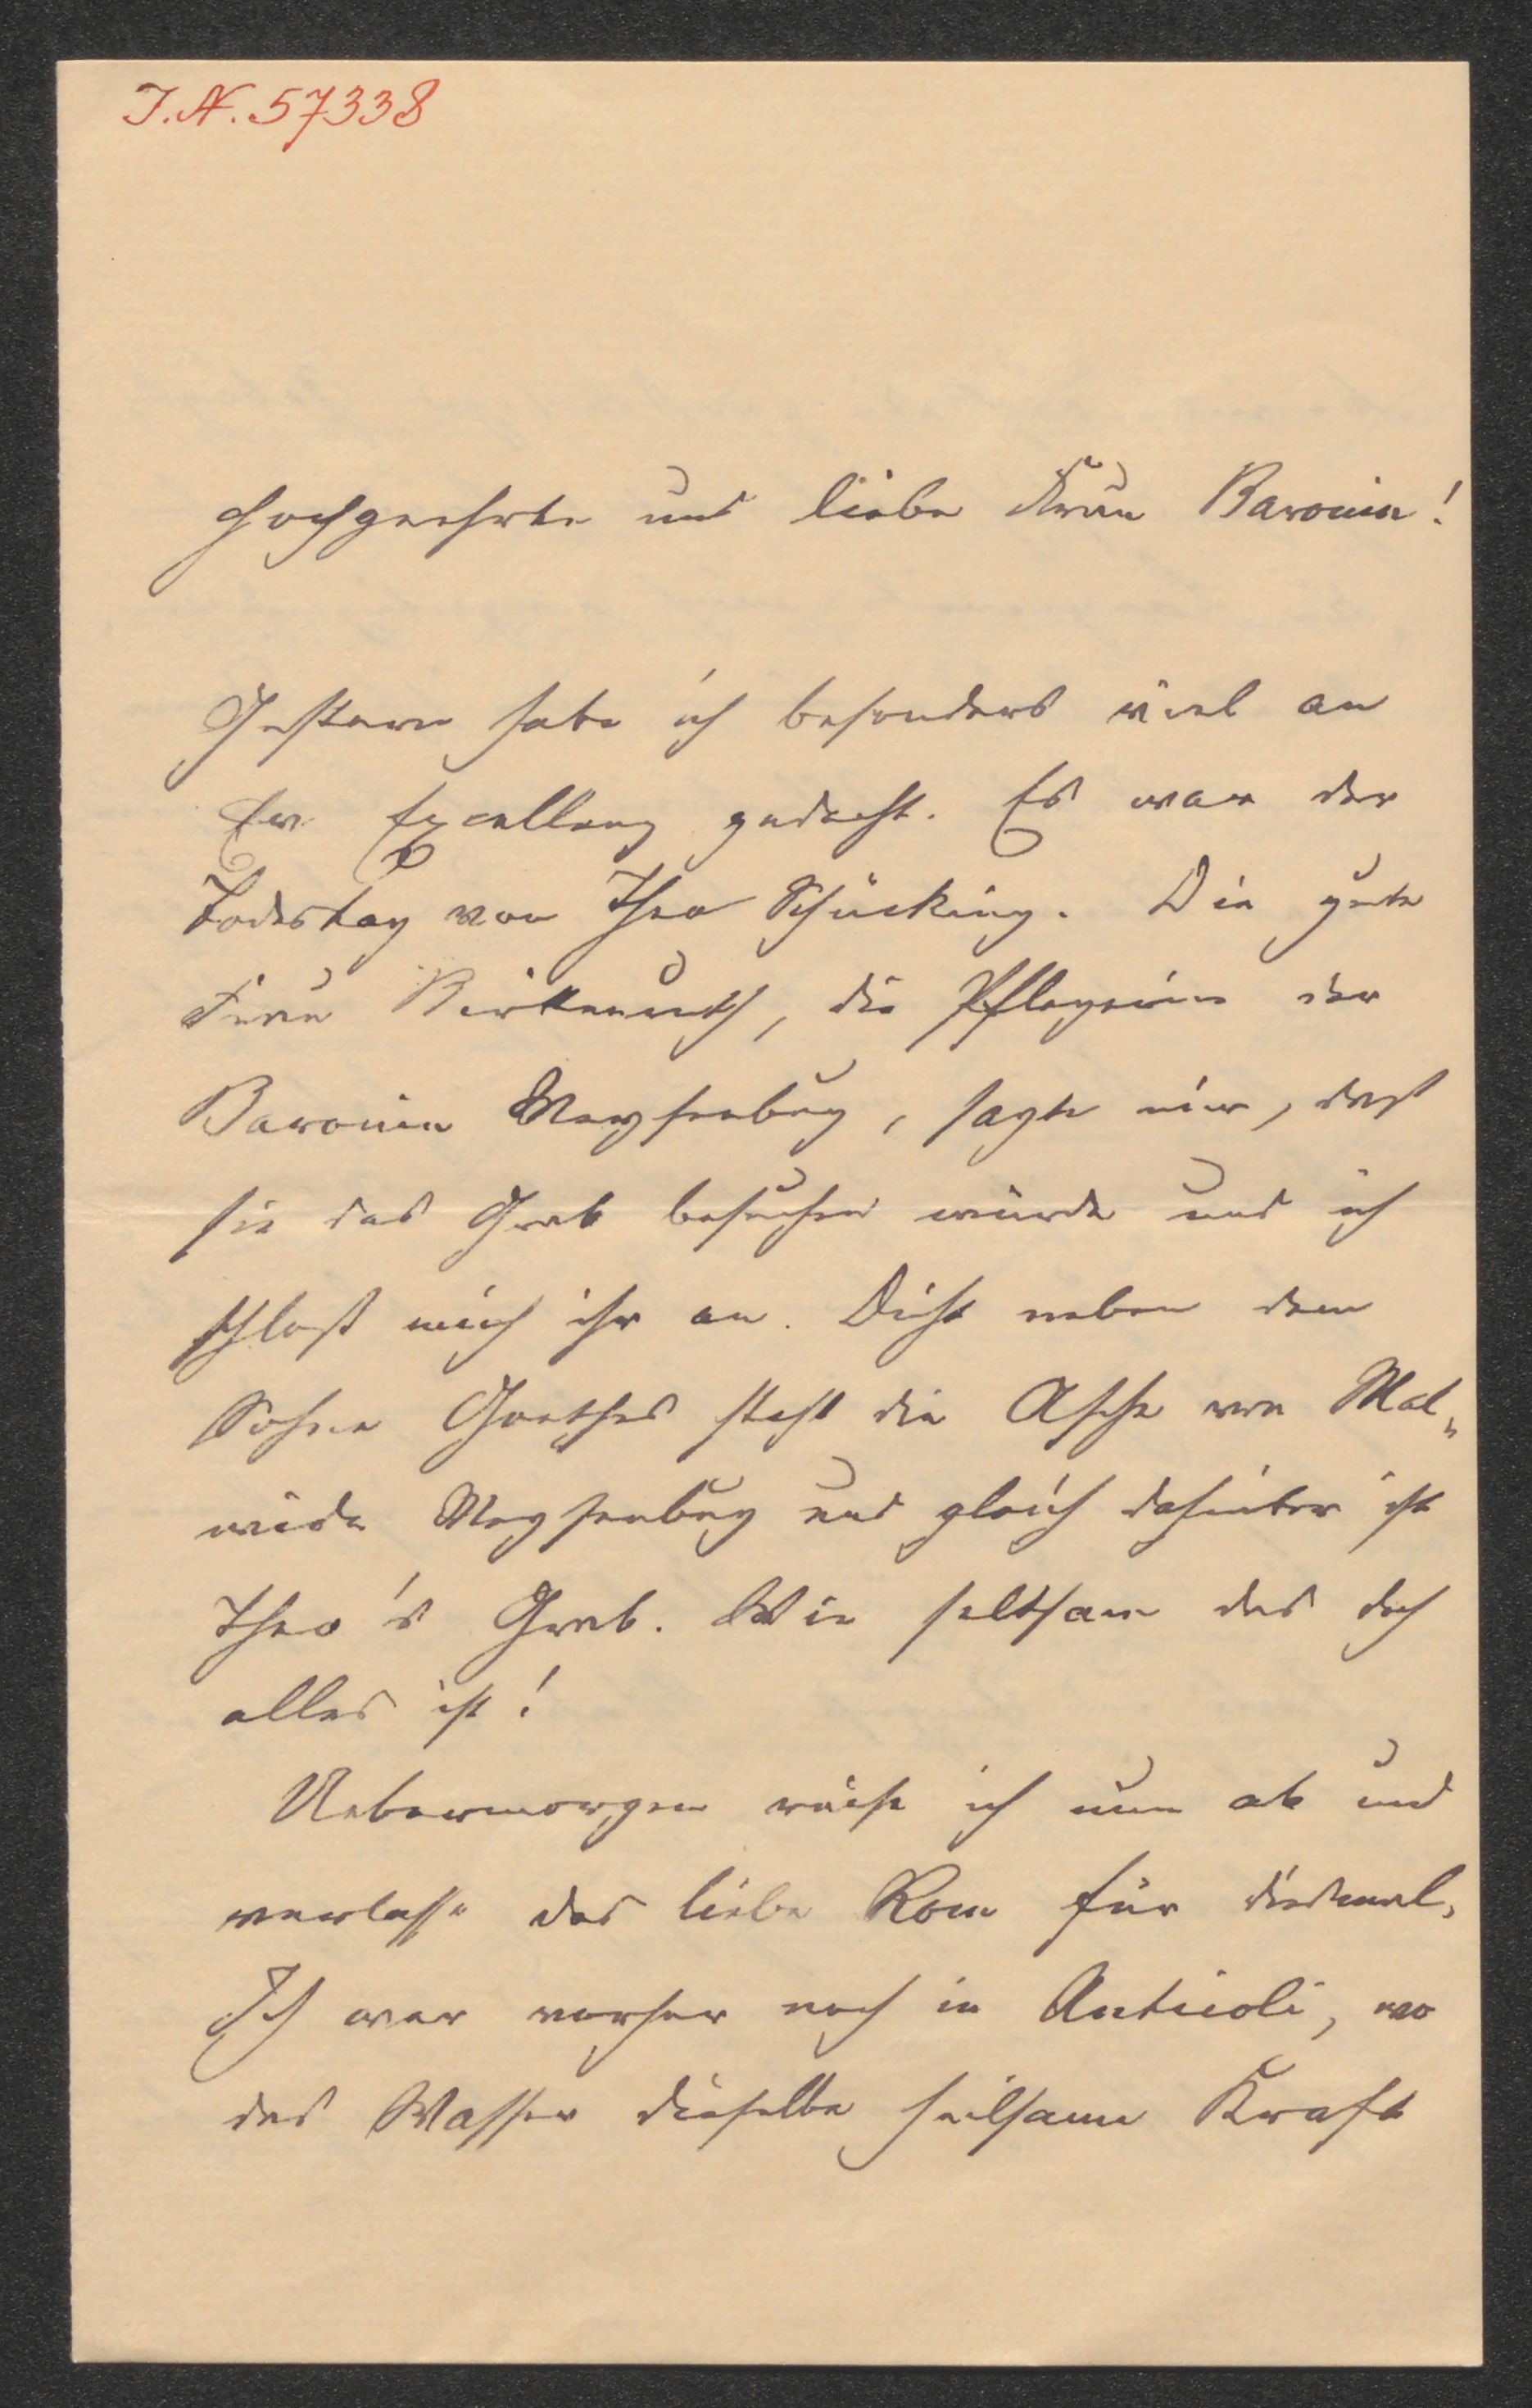 J. N. 57338
Hochgeehrte und liebe Frau Baronin!
Gestern habe ich besonders viel an
Ew. Excellenz gedacht. Es war der
Todestag von Theo Schücking. Die gute
Frau, die Pflegerin der
Baronin Meysenbug, sagte mir, daß
sie das Grab besuchen würde und ich
schloß mich ihr an. Dicht neben dem
Sohne Goethes steht die Asche von Mal„
wida Meysenbug und gleich dahinter ist
Theo's Grab. Wie seltsam das doch
alles ist!
Uebermorgen reise ich nun ab und
verlasse das liebe Rom für diesmal.
Ich war vorher noch in Anticoli, wo
das Wasser dieselbe heilsame Kraft